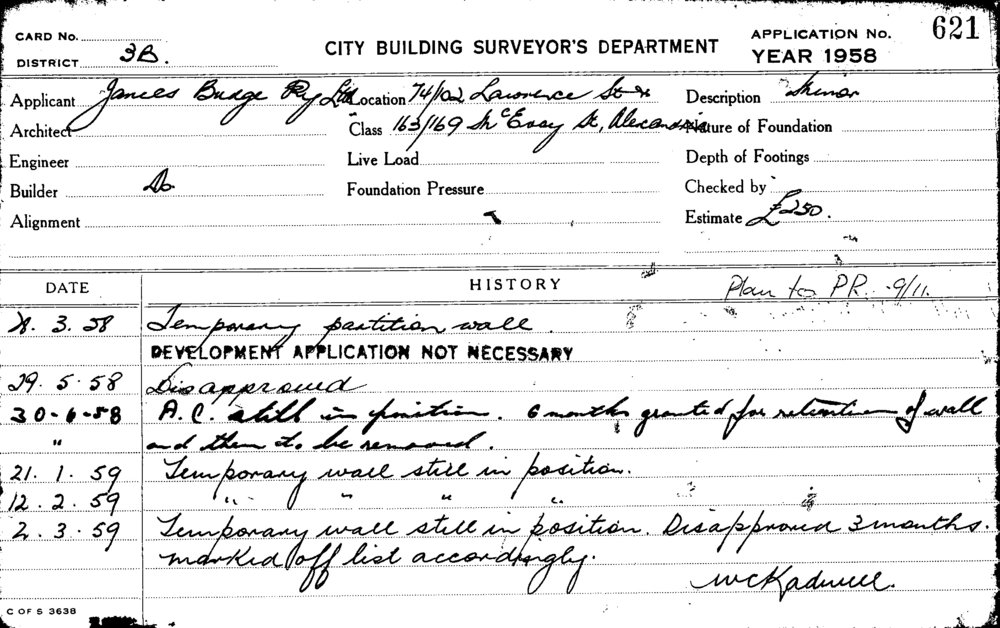 CARD No.
DISTRICT 3B.
CITY BUILDING SURVEYOR'S DEPARTMENT
APPLICATION No. 621
YEAR 1958
Applicant James Budge Pty Ltd Location 74/102 Lawrence St & Description Minor
Architect Class 163/169 McEvoy St, Alexandria Nature of Foundation
Engineer Live Load Depth of Footings
Builder Do Foundation Pressure Checked by
Alignment Estimate £250.
DATE HISTORY Plan to PR. 9/11.
28. 3. 58 Temporary partition wall.
DEVELOPMENT APPLICATION NOT NECESSARY
29. 5. 58 Disapproved
30-6-58 A.C. still in position. 6 months granted for retention of wall
" and then to be removed.
21. 1. 59 Temporary wall still in position.
12. 2. 59 " " " "
2. 3. 59 Temporary wall still in position. Disapproved 3 months.
marked off list accordingly.
C OF S 3638